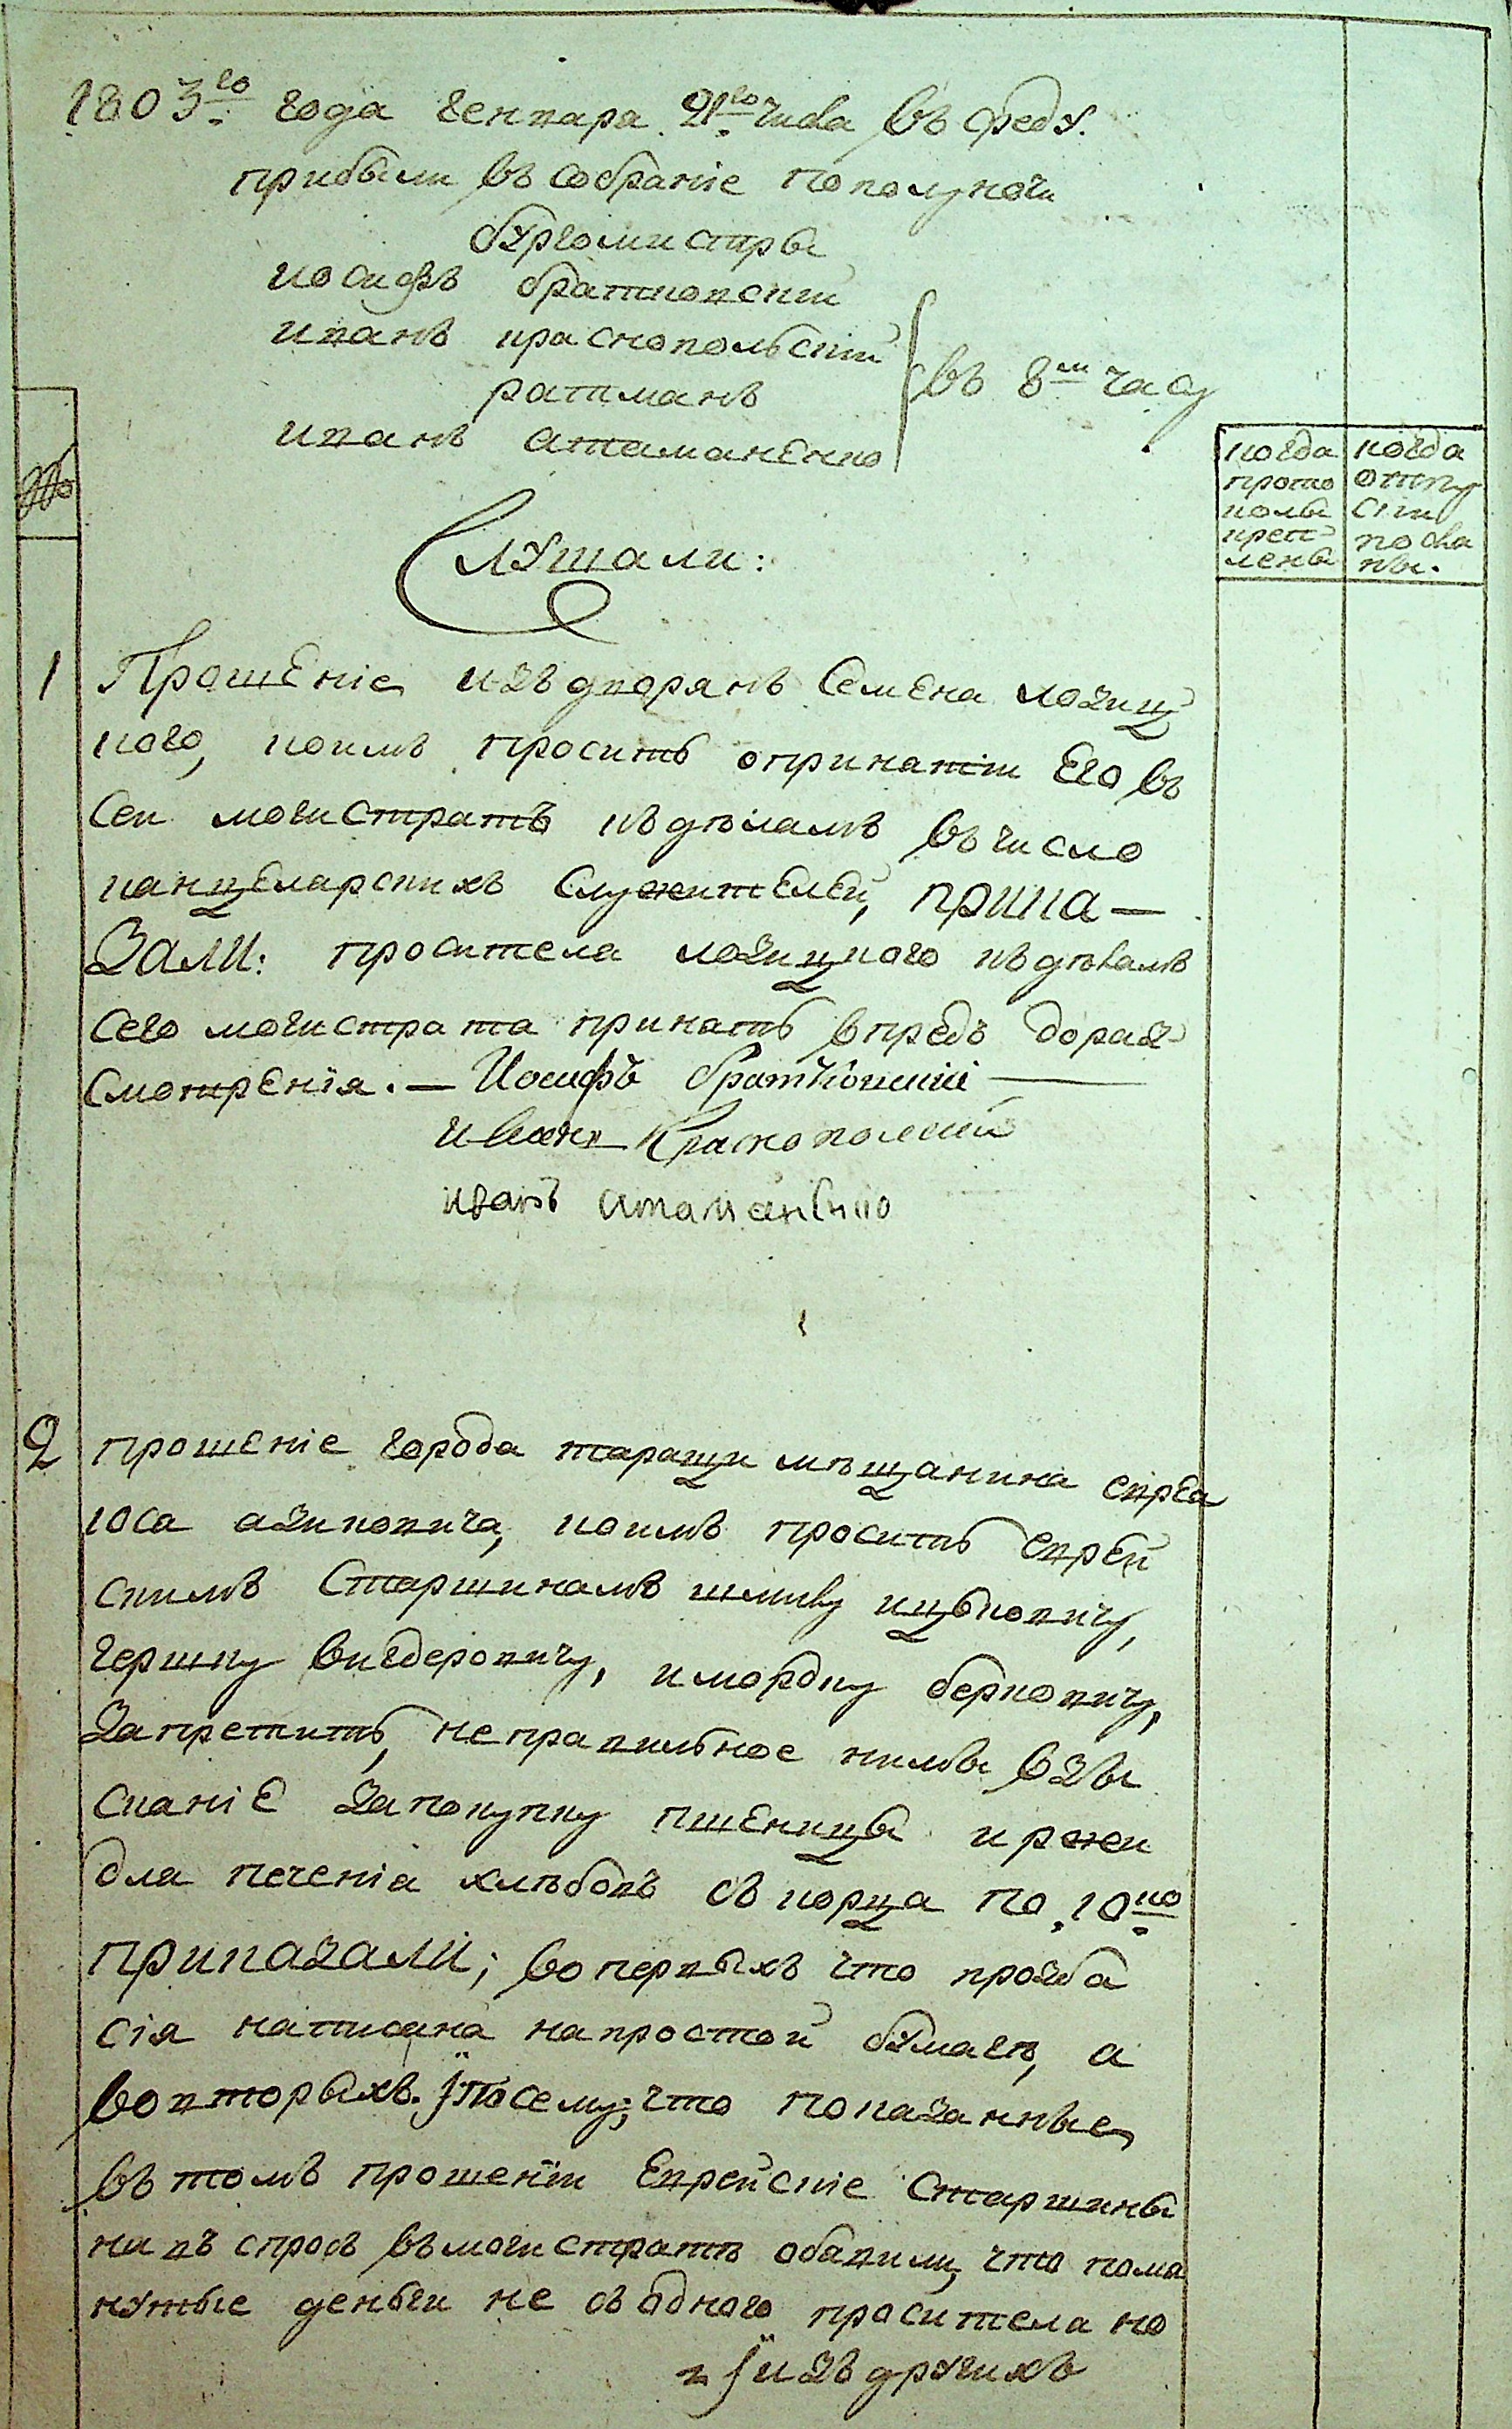 1803го года генвара 21го числа въ среду.
прибыли въ собраніе пополуночи
бургомистры
иосифъ братковскій
иванъ краснопольскій
ратманъ
въ 8м часу
иванъ атаманенко
№
когда прото колы креп лены
когда отпу скии посла ны.
Слушали:
1 Прошеніе изъ дворянъ Семена лозиц
кого, коимъ проситъ опринатіи Его въ
Сеи магистратъ къ дѣламъ въ число
канцеларскихъ Служителей, прика—
Зали: просителя лозицкого къ дѣламъ
сего магистрата принать впредь дораз
смотренія.— Иосифъ братковский
Иванъ Краснополский
иванъ атаманенко
2 прошеніе города таращи мѣщанина еврея
иоса азиковича, коимъ проситъ еврей
скимъ Старшинамъ шмилу ицковичу,
гершку вигдеровичу, и мордку берковичу,
Запретить, неправильное нимы взы
сканіе Запокупку пшеницы и ржи
для печеніа хлѣбовъ съ корца по 10ко
приказали; вопервыхъ что прозба
сія написана напростой бумагѣ, а
вовторыхъ. посему; что показанные
въ томъ прошеніи Еврейскіе Старшины
на въ спросъ въ магистратѣ обавили, что помя
нутые деньги не съ одного просителя но
и изъ другихъ